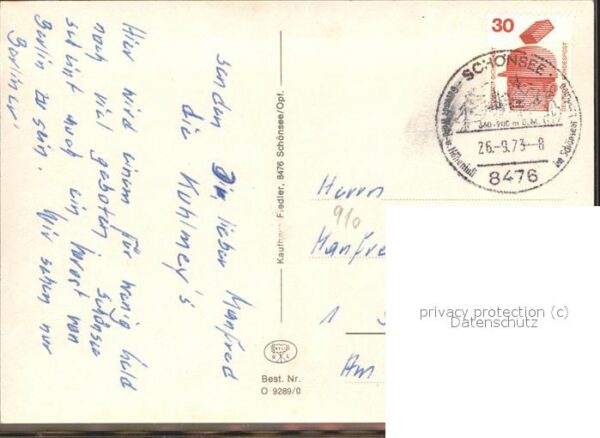 Hier wird einem für wenig Geld
noch viel geboten. Schönsee
scheint auch ein Vorort von
Berlin zu sein. Wir sehen nur
Berliner
senden Dir lieber Manfred
die Kuhlmey's
Kaufhaus Fiedler, 8476 Schönsee/Opf.
Best. Nr.
O 9289/0
30
DEUTSCHE BUNDESPOST
SCHÖNSEE
26.-9.73-8
8476
Herrn
910
Manfred
1
Am
privacy protection (c)
Datenschutz